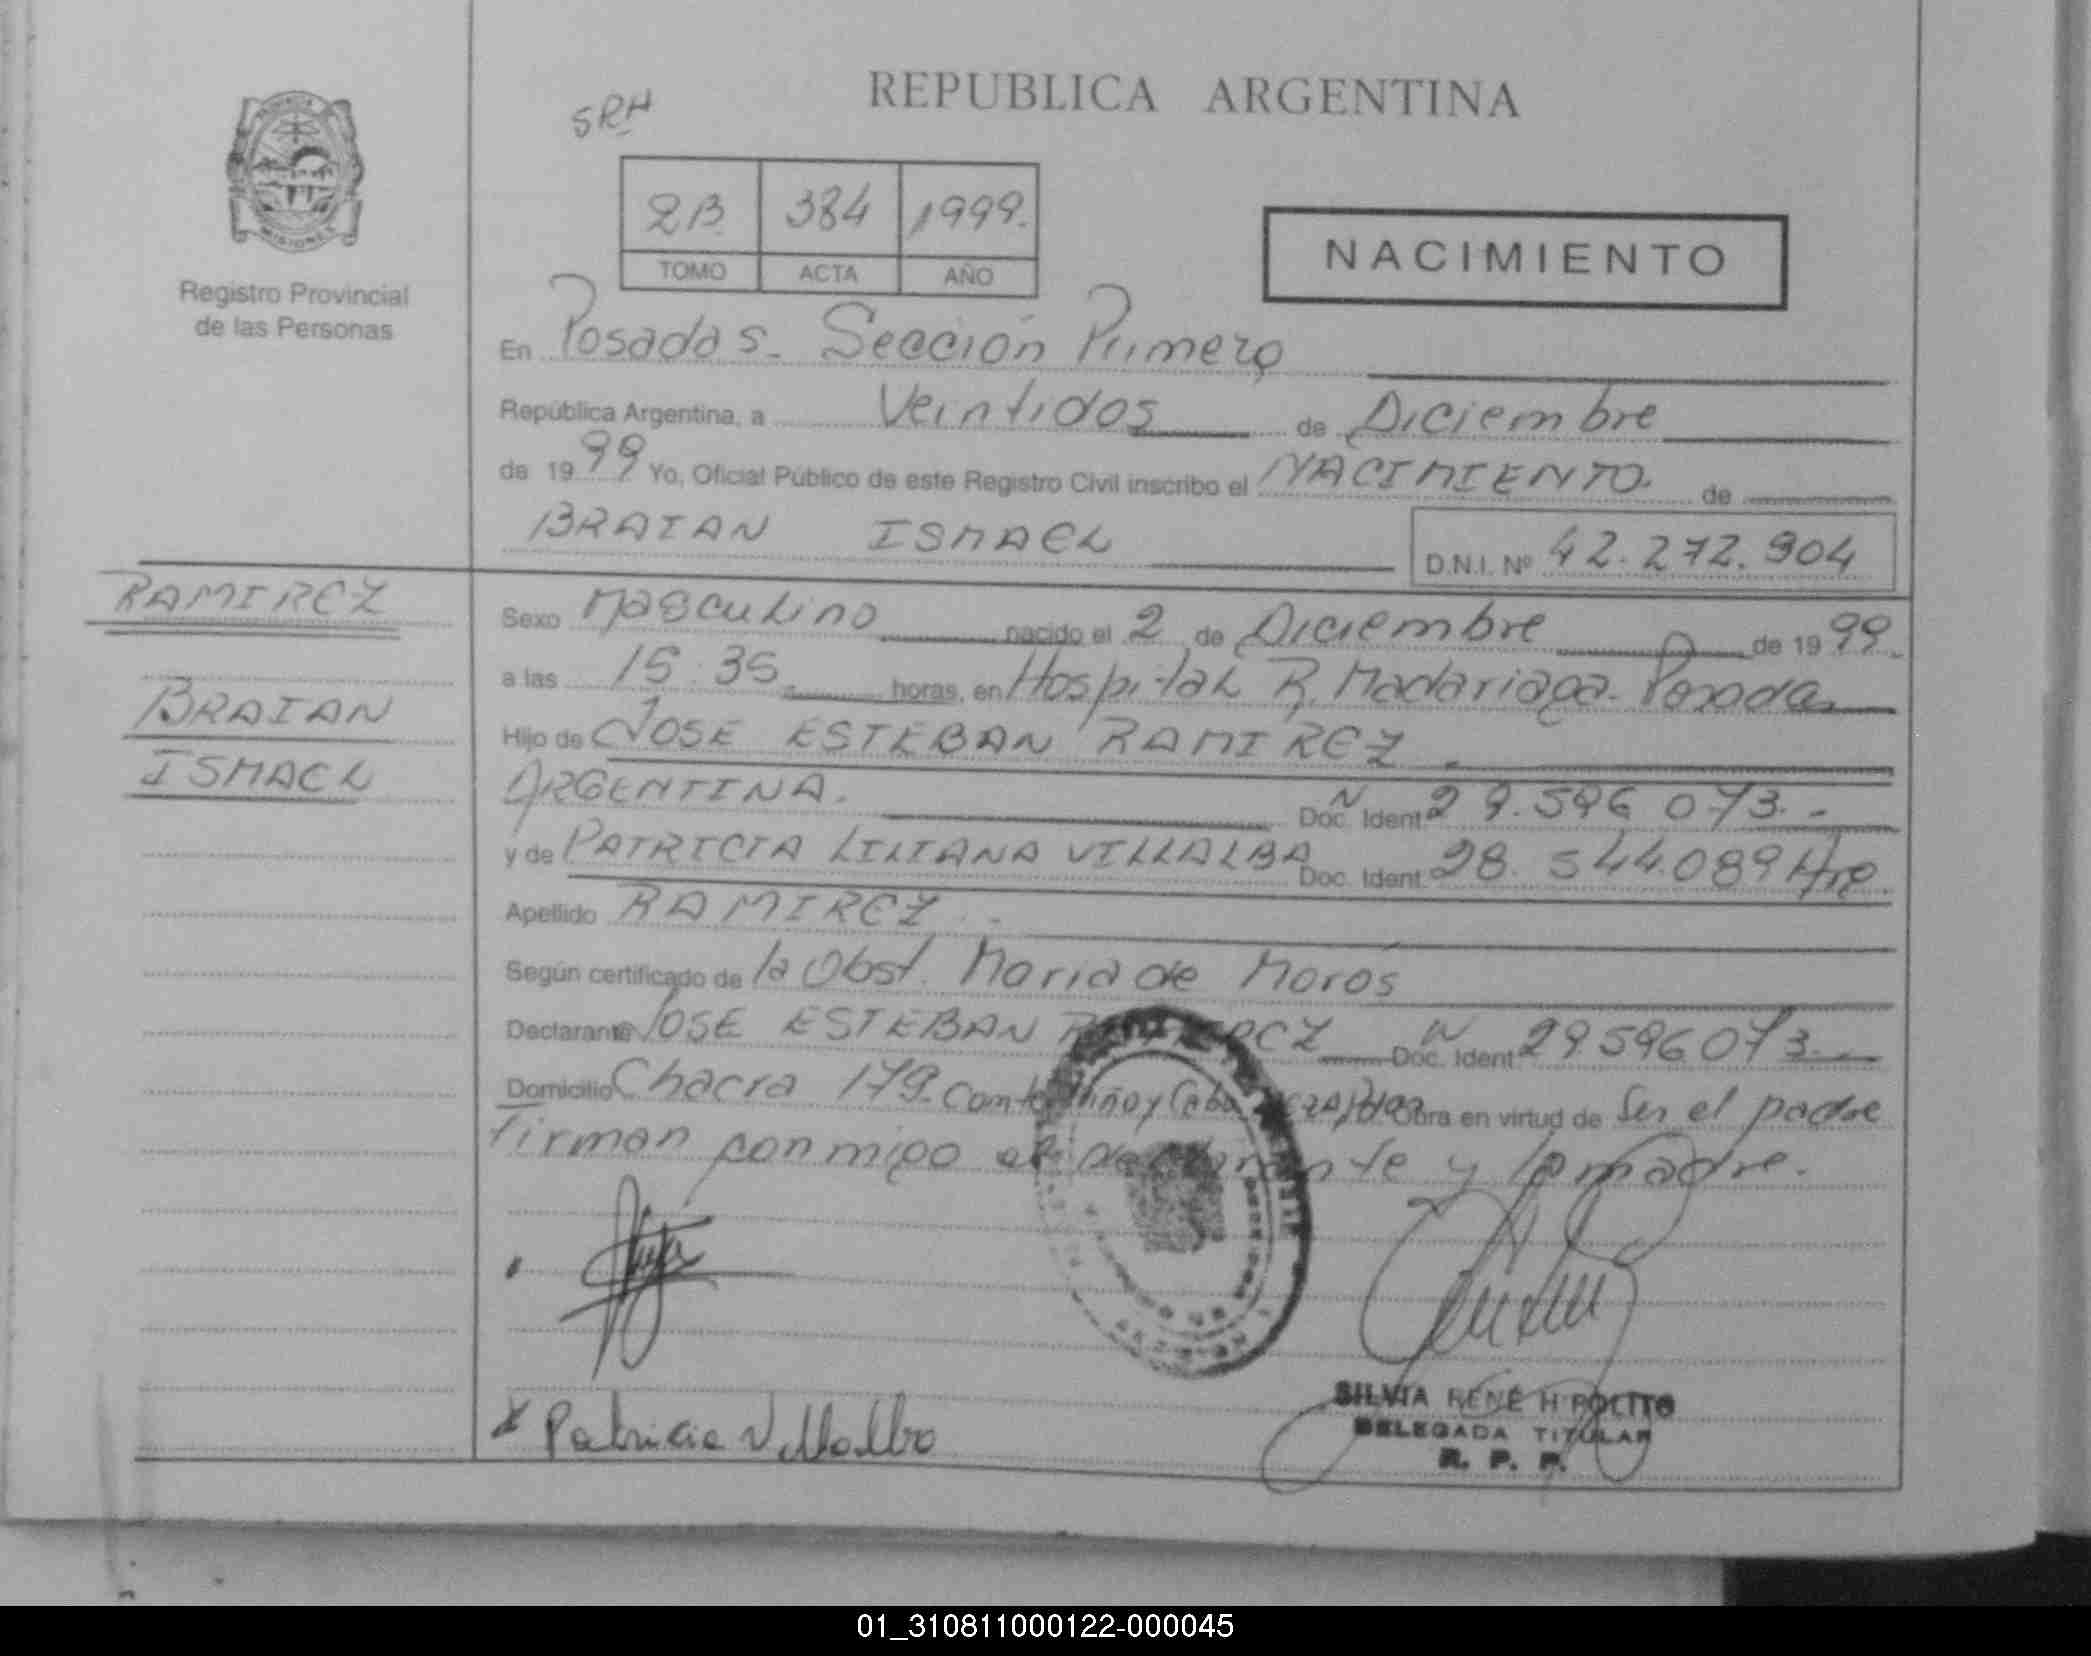 REPUBLICA ARGENTINA
SRH
PROVINCIA
MISIONES
Registro Provincial
de las Personas
2B 384 1999.
TOMO ACTA AÑO
NACIMIENTO
En Posadas. Sección Primera
República Argentina, a Veintidos de Diciembre
de 1999 Yo, Oficial Público de este Registro Civil inscribo el NACIMIENTO. de
BRAIAN ISMAEL D.N.I. Nº 42.272.904
RAMIREZ
BRAIAN
ISMAEL
Sexo Masculino nacido el 2 de Diciembre de 1999.
a las 15.35 horas, en Hospital R. Madariaga - Posadas
Hijo de JOSE ESTEBAN RAMIREZ.
ARGENTINA. Doc. Ident. N 29.596 073.-
y de PATRICIA LILIANA VILLALBA Doc. Ident. 28.544.089
Apellido RAMIREZ.
Según certificado de la Obst. Maria de Moros
Declarante JOSE ESTEBAN RAMIREZ Doc. Ident. N 29596073.-
Domicilio Chacra 179. Obra en virtud de Ser el padre
Firman conmigo el declarante y la madre.
x Patricia Villalba
SILVIA RENÉ HIPOLITO
DELEGADA TITULAR
R. P. P.
01_310811000122-000045